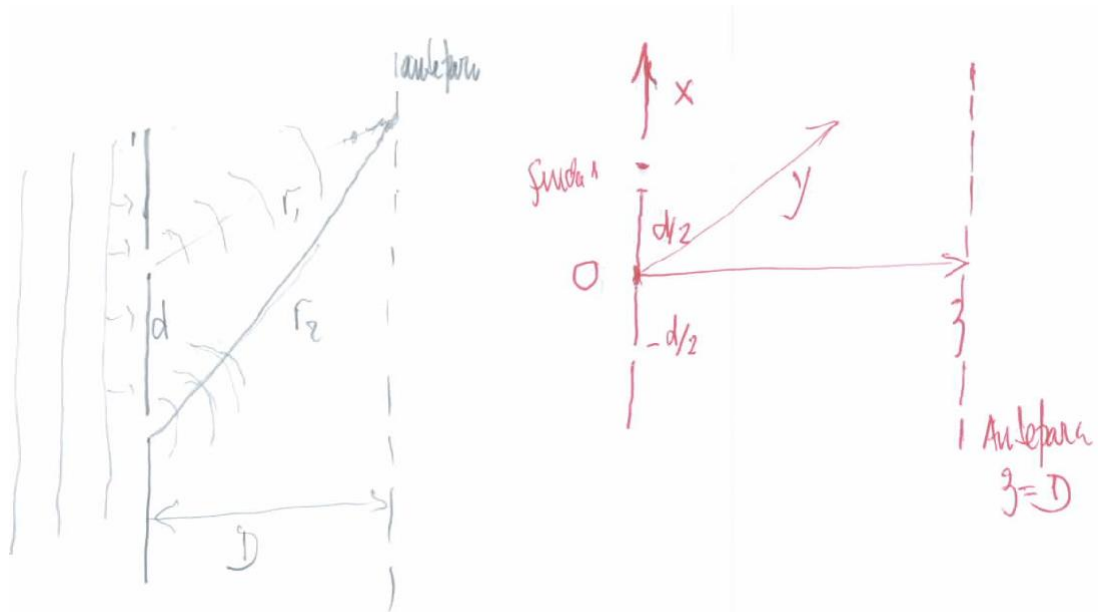 antepara
r₁
d
r₂
D
x
fenda 1
d/2
y
O
z
-d/2
Antepara
z=D